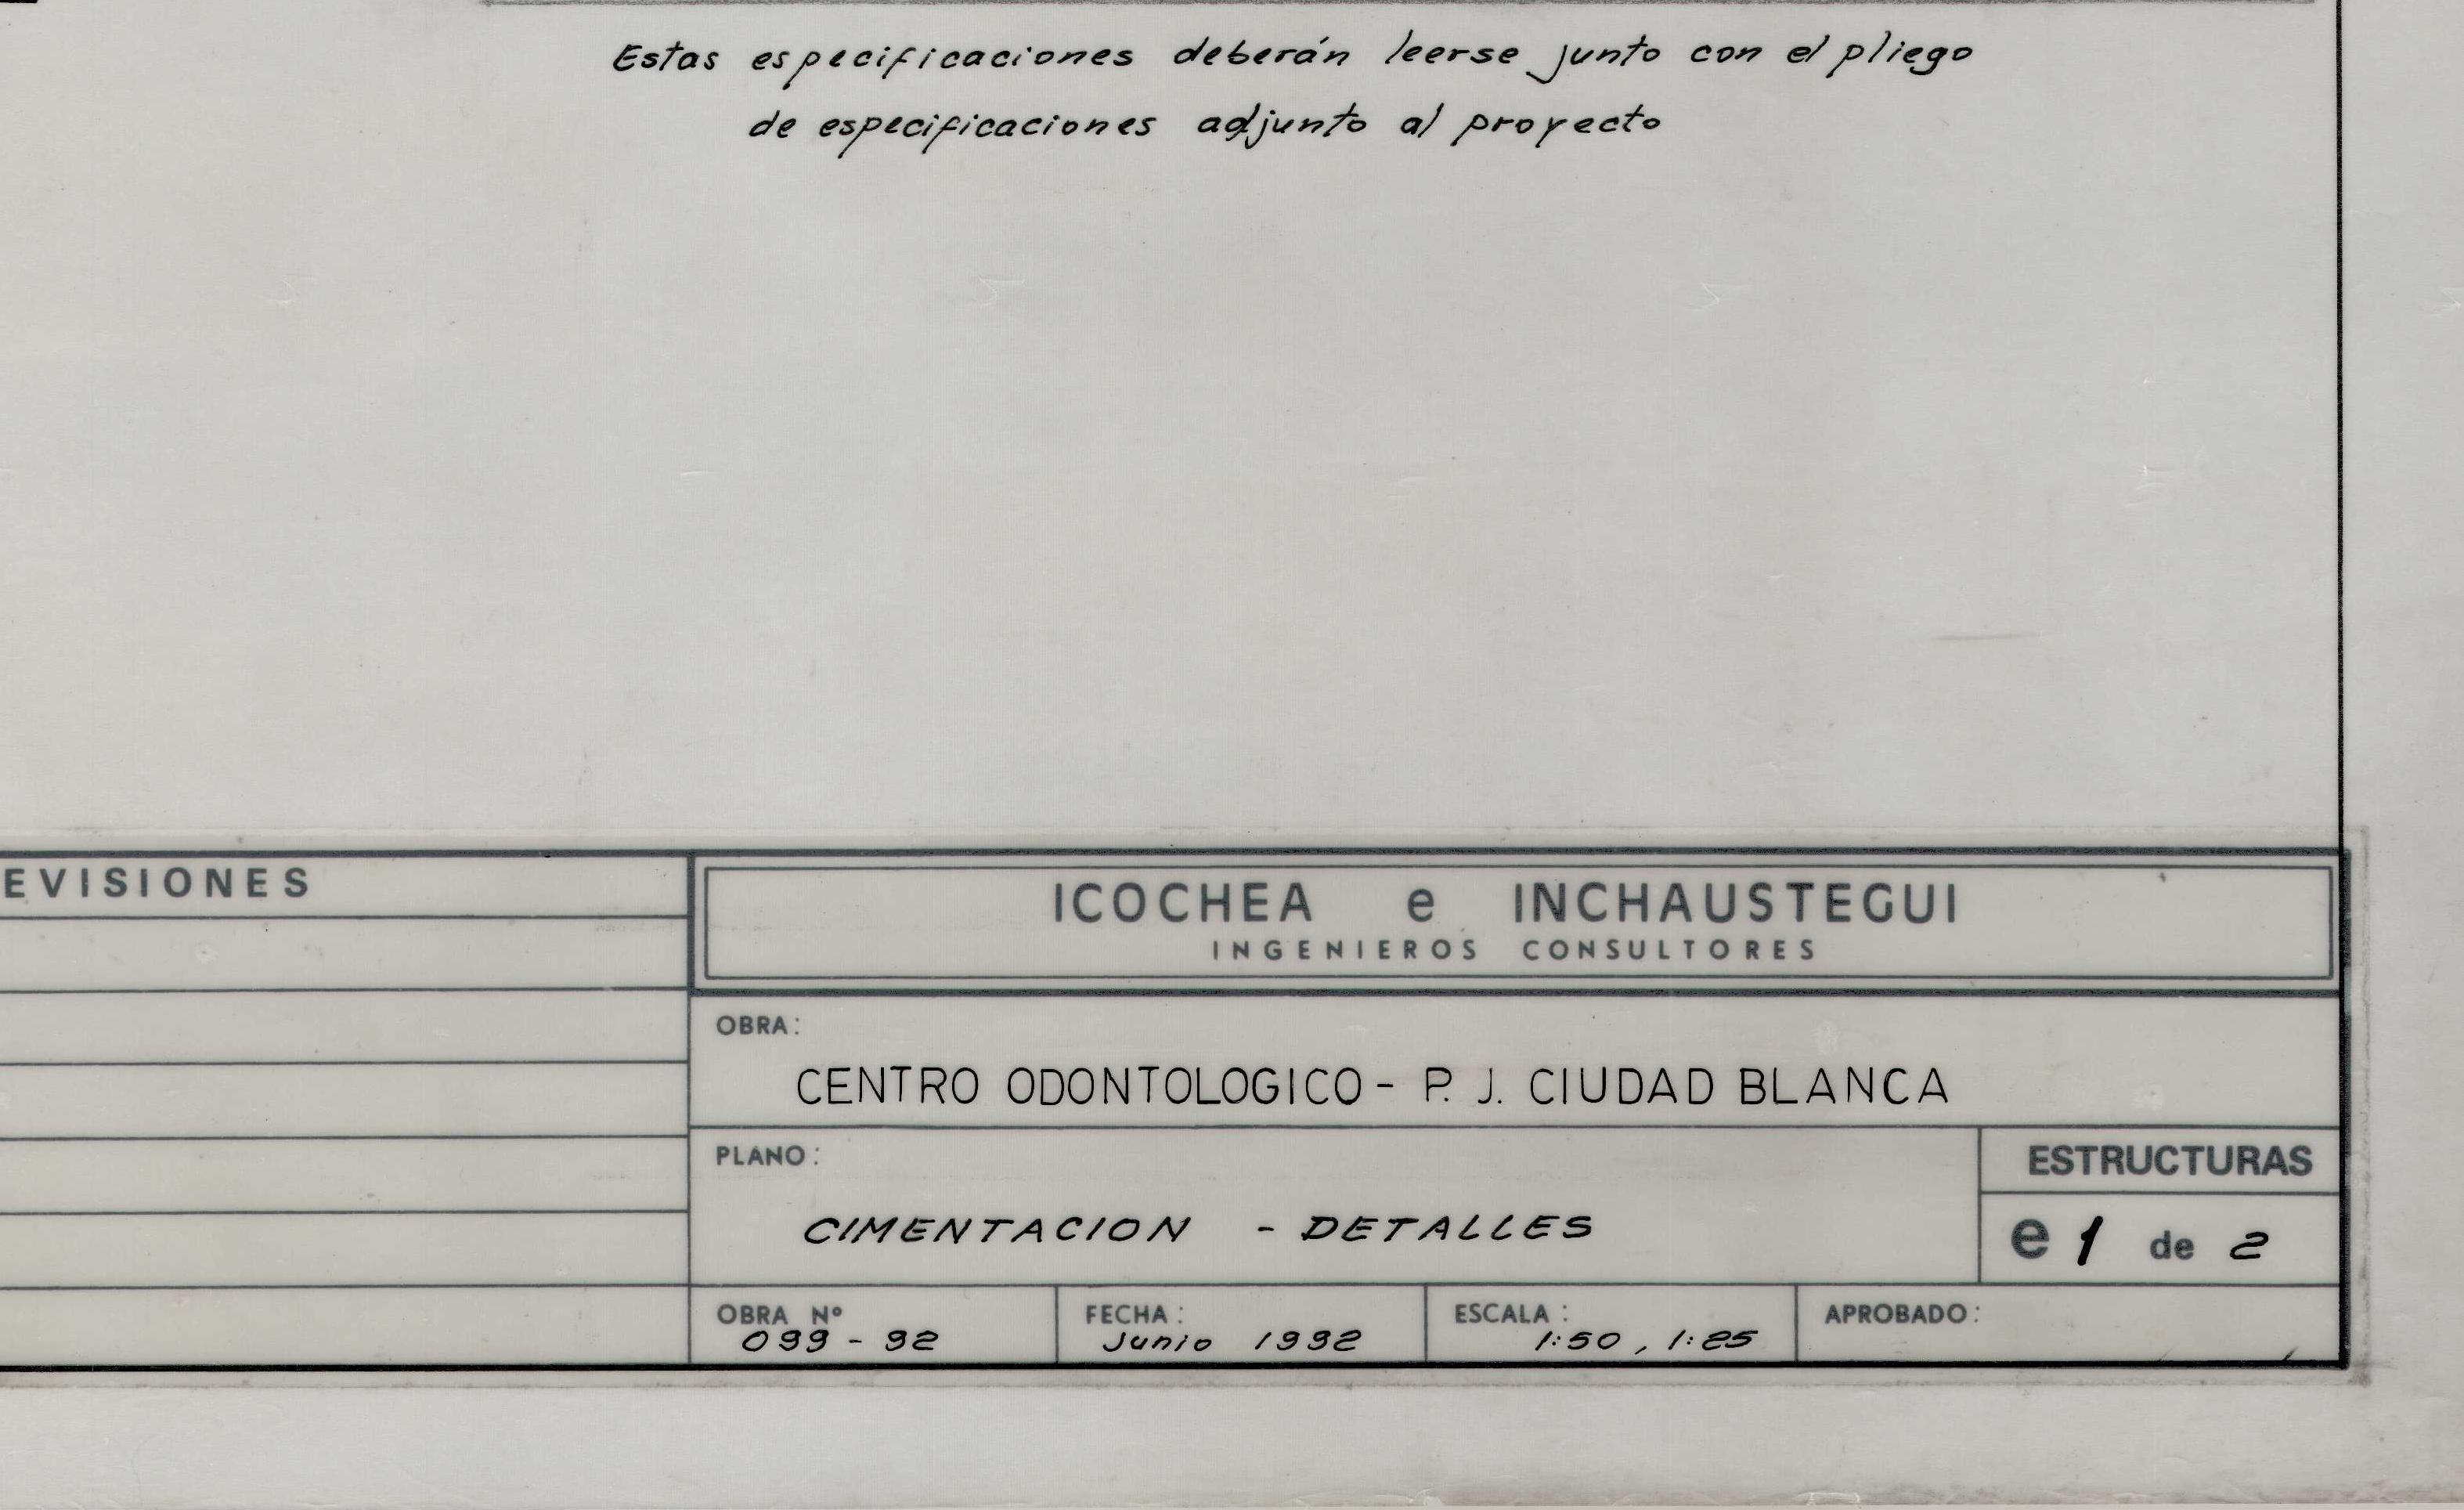 Estas especificaciones deberán leerse junto con el pliego
de especificaciones adjunto al proyecto
EVISIONES
ICOCHEA e INCHAUSTEGUI
INGENIEROS CONSULTORES
OBRA:
CENTRO ODONTOLOGICO - P. J. CIUDAD BLANCA
PLANO:
CIMENTACION - DETALLES
ESTRUCTURAS
e 1 de 2
OBRA Nº
099 - 92
FECHA:
Junio 1992
ESCALA:
1:50, 1:25
APROBADO: